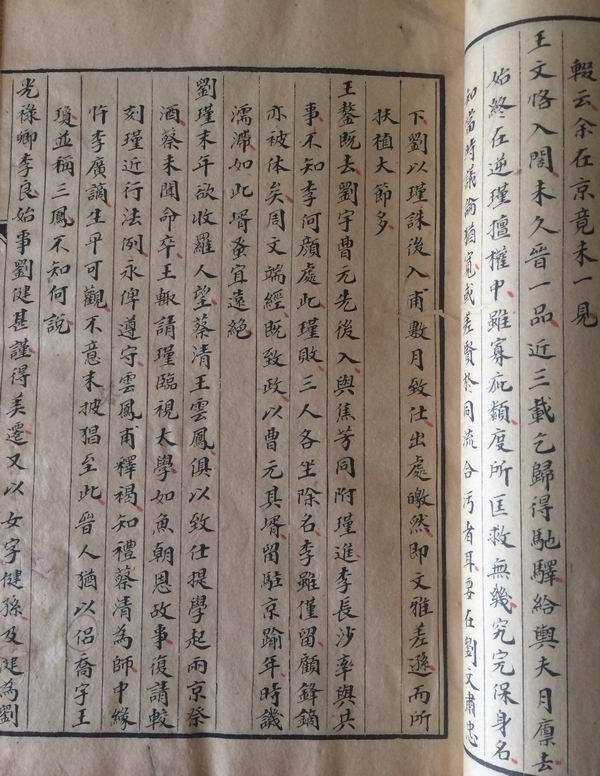 輟云余在京竟未一見
王文恪入閣未久晉一品近三載乞歸得馳驛給輿夫月廩去
始終在逆瑾擅權中雖寡疵纇度所匡救無幾究完保身名
知當時議論猶寬或差賢於同流合污者耳要在劉文肅忠
下劉以瑾誅後入甫數月致仕出處皦然即文雅差遜而所
扶植大節多
王鏊既去劉宇曹元先後入與焦芳同附瑾進李長沙率與共
事不知李何顏處此瑾敗三人各坐除名李雖僅留顧鋒鏑
亦被体矣周文端經既致政以曹元其壻留駐京踰年時譏
濡滯如此壻蚤宜遠絕
劉瑾末年欲收羅人望蔡清王雲鳳俱以致仕提學起兩京祭
酒蔡未聞命卒王輙請瑾臨視太學如魚朝恩故事復請較
刻瑾近行法例永俾遵守雲鳳甫釋褐知禮蔡清為師中緣
忤李廣謫生平可觀不意末披猖至此晉人猶以侶喬宇王
瓊並稱三鳳不知何說
光祿卿李良始事劉健甚謹得美遷又以女字健孫及健為劉